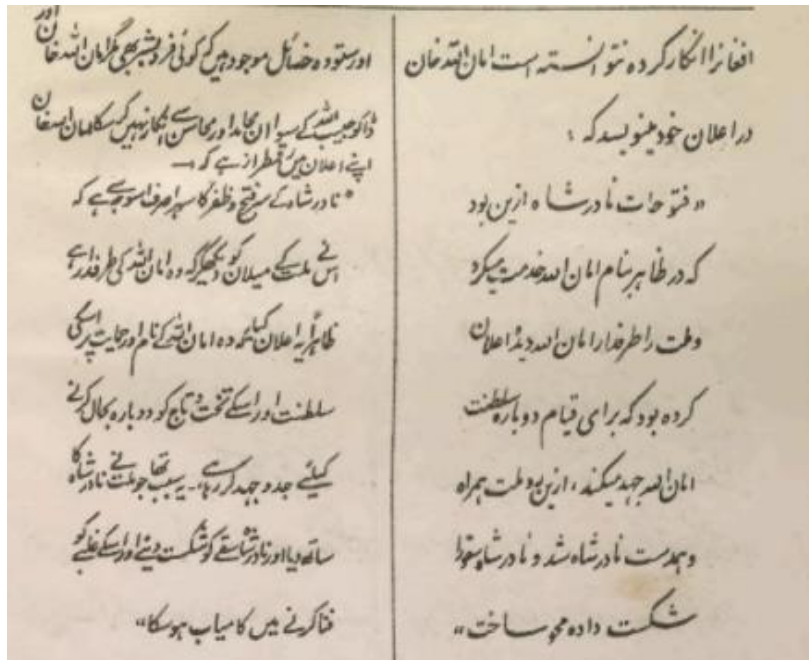 افغانرا انکار کرده نتوانسته است امان الله خان
در اعلان خود مینویسد که :
« فتوحات نادر شاه ازین بود
که در ظاهر بنام امان الله خدمت میکرد
وملت را طرفدار امان الله دیده اعلان
کرده بود که برای قیام دوباره سلطنت
امان الله جهد میکند ، ازین رو ملت همراه
و همدست نادر شاه شد و نادر شاه سقو را
شکست داده محو ساخت »
اور ستوده خصائل موجود ہیں کہ کوئی فرد بشر بھی مگر امان اللہ خان اور
ڈاکو حبیب اللہ کے سوا ان محامد اور محاسن سے انکار نہیں کر سکا امان اللہ خان
اپنے اعلان میں رقمطراز ہے کہ :—
" نادر شاہ کے سر فتح و ظفر کا سہرا صرف اسوجہ سے ہے کہ
اس نے ملت کے میلان کو دیکھکر کہ وہ امان اللہ کی طرفدار ہے
ظاہراً یہ اعلان کیا کہ وہ امان اللہ کے نام اور حمایت پر اسکی
سلطنت اور اسکے تخت و تاج کو دوبارہ بحال کرنے
کیلئے جدوجہد کر رہا ہے ۔ یہ سبب تھا جو ملت نے نادر شاہ کا
ساتھ دیا اور نادر شاہ سقے کو شکست دینے اور اسکے غلبے کو
فنا کرنے میں کامیاب ہوسکا "